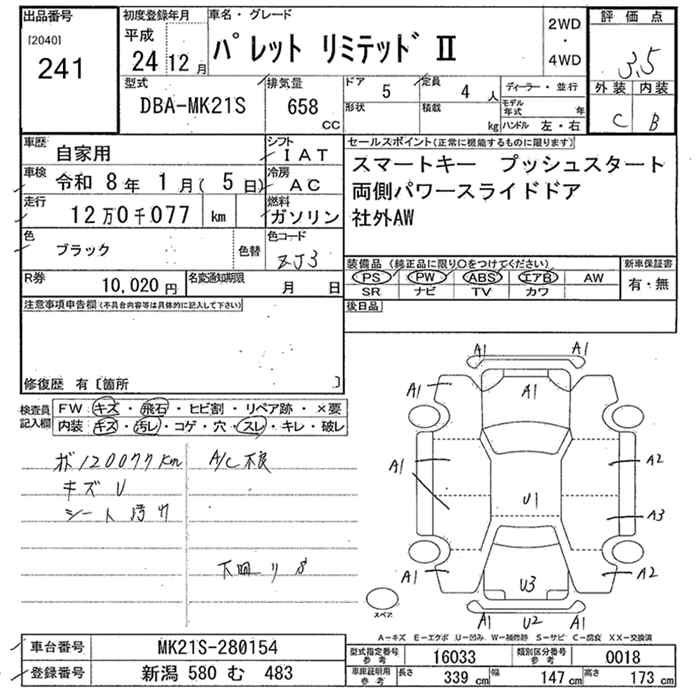 出品番号
[2040]
241
初度登録年月
平成
24 12月
車名・グレード
パレット リミテッド Ⅱ
2WD
・
4WD
評価点
3.5
外装 内装
C B
型式
DBA-MK21S
排気量
658
CC
ドア
5
定員
4 人
形状
積載
kg
ディーラー・並行
モデル年式 年
ハンドル 左・右
車歴
自家用
シフト
IAT
車検
令和 8年 1月( 5日)
冷房
AC
走行
12万0千077 km
燃料
ガソリン
色
ブラック
色替
色コード
ZJ3
R券
10,020円
名変通知期限
月 日
セールスポイント(正常に機能するものに限ります)
スマートキー プッシュスタート
両側パワースライドドア
社外AW
装備品(純正品に限り○をつけてください)
PS PW ABS エアB AW
SR ナビ TV カワ
新車保証書
有・無
後日品
注意事項申告欄(不具合内容等は具体的に記入して下さい)
修復歴 有〔箇所 〕
検査員
記入欄
FW キズ・飛石・ヒビ割・リペア跡・×要
内装 キズ・汚レ・コゲ・穴・スレ・キレ・破レ
ボ120077Km
A/C不良
キズU
シート汚レ
下回リS
A1 A1
A1 A1 A1
A1 A2
U1
A3
A1 A2
U3
U2
スペア
A-キズ E-エクボ U-凹み W-補修跡 S-サビ C-腐食 XX-交換済
車台番号
MK21S-280154
登録番号
新潟 580 む 483
型式指定番号
参考
16033
類別区分番号
参考
0018
車庫証明用
参考
長さ
339 cm
幅
147 cm
高さ
173 cm